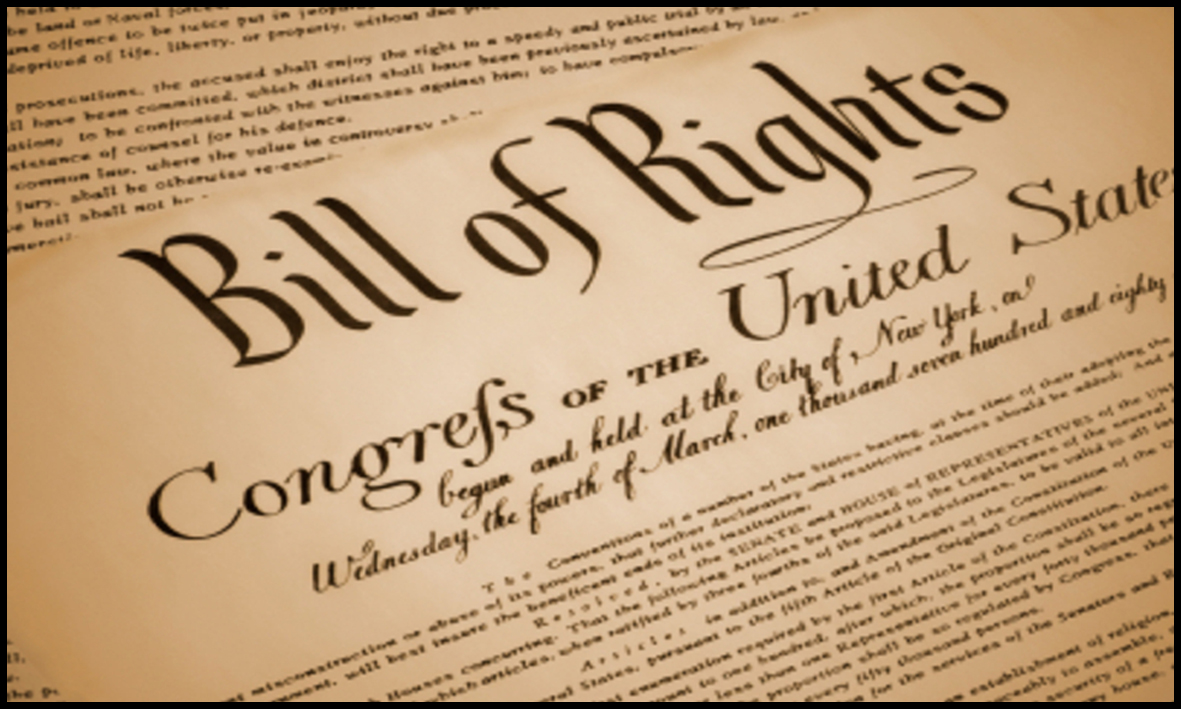 held in
be land or Naval forces,
ame offence to be twice put in jeopardy
deprived of life, liberty, or property, without due pro
prosecutions, the accused shall enjoy the right to a speedy and public trial by
ll have been committed, which district shall have been previously ascertained by law,
ation; to be confronted with the witnesses against him; to have compulsory
sistance of counsel for his defence.
common law, where the value in controversy
jury, shall be otherwise re-exami
ve bail shall not be
Bill of Rights
Congreſs OF THE United States
begun and held at the City of New York, on
Wednesday, the fourth of March, one thousand seven hundred and eighty
The Conventions of a number of the States having, at the time of their adopting the
misconstruction or abuse of its powers, that further declaratory and restrictive clauses should be added: And
ernment, will best insure the beneficent ends of its institution:
Resolved, by the SENATE and HOUSE of REPRESENTATIVES of the
Houses concurring. That the following Articles be proposed to the Legislatures of the several
which articles, when ratified by three fourths of the said Legislatures, to be valid to all
Articles in addition to, and Amendment of the Constitution of the
eral States, pursuant to the fifth Article of the Original Constitution.
enumeration required by the first Article of the Constitution, there
to one hundred, after which, the proportion shall be so
less than one Representative for every forty thousand
proportion shall be so regulated by Congress, that
every fifty thousand persons.
for the services of the Senators and
an establishment of religion,
ceably to assemble,
security of a
house,